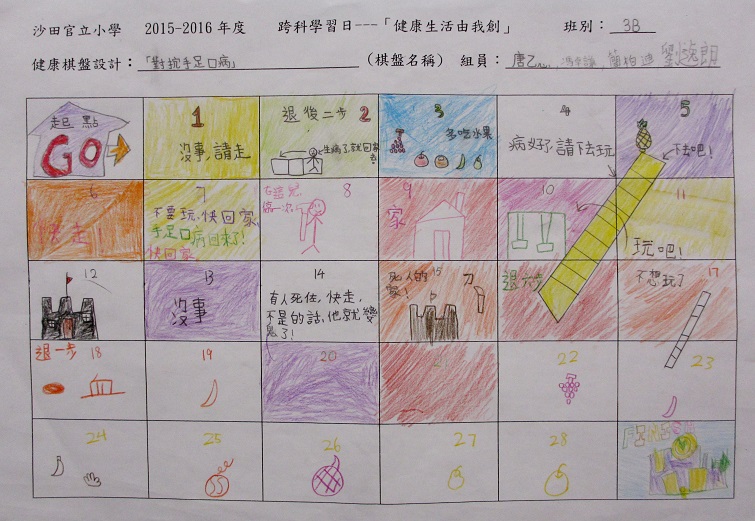 沙田官立小學 2015-2016年度 跨科學習日---「健康生活由我創」 班別： 3B
健康棋盤設計：「對抗手足口病」（棋盤名稱） 組員：
起點
GO
1
沒事,請走
退後二步 2
生病了,就回家
3
多吃水果
4
病好,請去玩
5
不去吧！
6
快走！
7
不要玩,快回家,
手足口病回來了!
快回家
8
在這兒
9
家
10
11
玩吧！
12
13
沒事
14
有人死住,快走,
不是的話,他就變
鬼了!
15
死人的
家!
刀
退六步
17
不想玩了
退一步 18
19
20
22
23
24
25
26
27
28